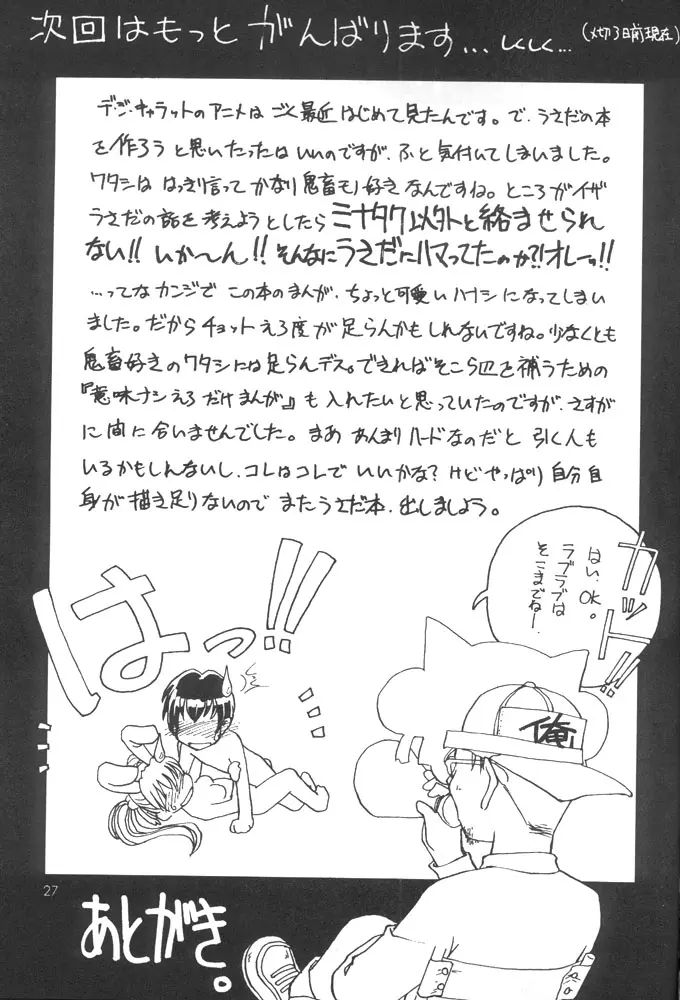 次回はもっとがんばります…しくしく…(〆切3日前現在)
デ・ジ・キャラットのアニメはごく最近はじめて見たんです。で、うさだの本
を作ろうと思いたったはいいのですが、ふと気付いてしまいました。
ワタシははっきり言ってかなり鬼畜モノ好きなんですね。ところがイザ
うさだの話を考えようとしたらミナタク以外と絡ませられ
ない!!いか〜ん!!そんなにうさだにハマってたのか?!オレーッ!!
…ってなカンジでこの本のまんが、ちょっと可愛いハナシになってしまい
ました。だからチョットえろ度が足らんかもしれないですね。少なくとも
鬼畜好きのワタシには足らんデス。できればそこら辺を補うための
『意味ナシえろだけまんが』も入れたいと思っていたのですが、さすが
に間に合いませんでした。まああんまりハードなのだと引く人も
いるかもしんないし、コレはコレでいいかな?けどやっぱり自分自
身が描き足りないのでまたうさだ本、出しましょう。
カット!!
はい、OK。
ラブラブは
そこまでねー。
はっ!!
俺
27
あとがき。